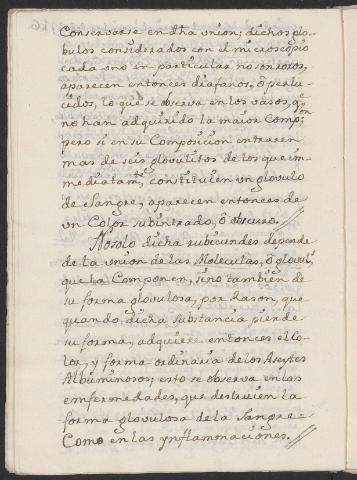 Conservarse en dha vnion; dichos glo-
bulos considerados con el microscopio
cada vno en particular no son roxos,
aparecen entonces diafanos, ô perlu-
cidos, lo que se observa en los vasos, q.e
no han adquirido la maior Comp.on
pero si en su Composicion entraren
mas de seis glovulitos de los que im-
mediatam.te constituien vn glovulo
de Sangre, aparecen entonces de
vn Color subintrado, ô obscuro.//
Nosolo dicha rubicundes depende
de la vnion de las Moleculas, ô glovul.s
que la Componen, sino tambien de
su forma glovulosa, por Rason, que
quando dicha substancia pierde
su forma, adquiere entonces el Co-
lor, y forma ordinaria de los Aseytes
Albuminosos; esto se observa en las
emfermedades, que destruien la
forma glovulosa de la Sangre-
Como en las ynflammaciones.//